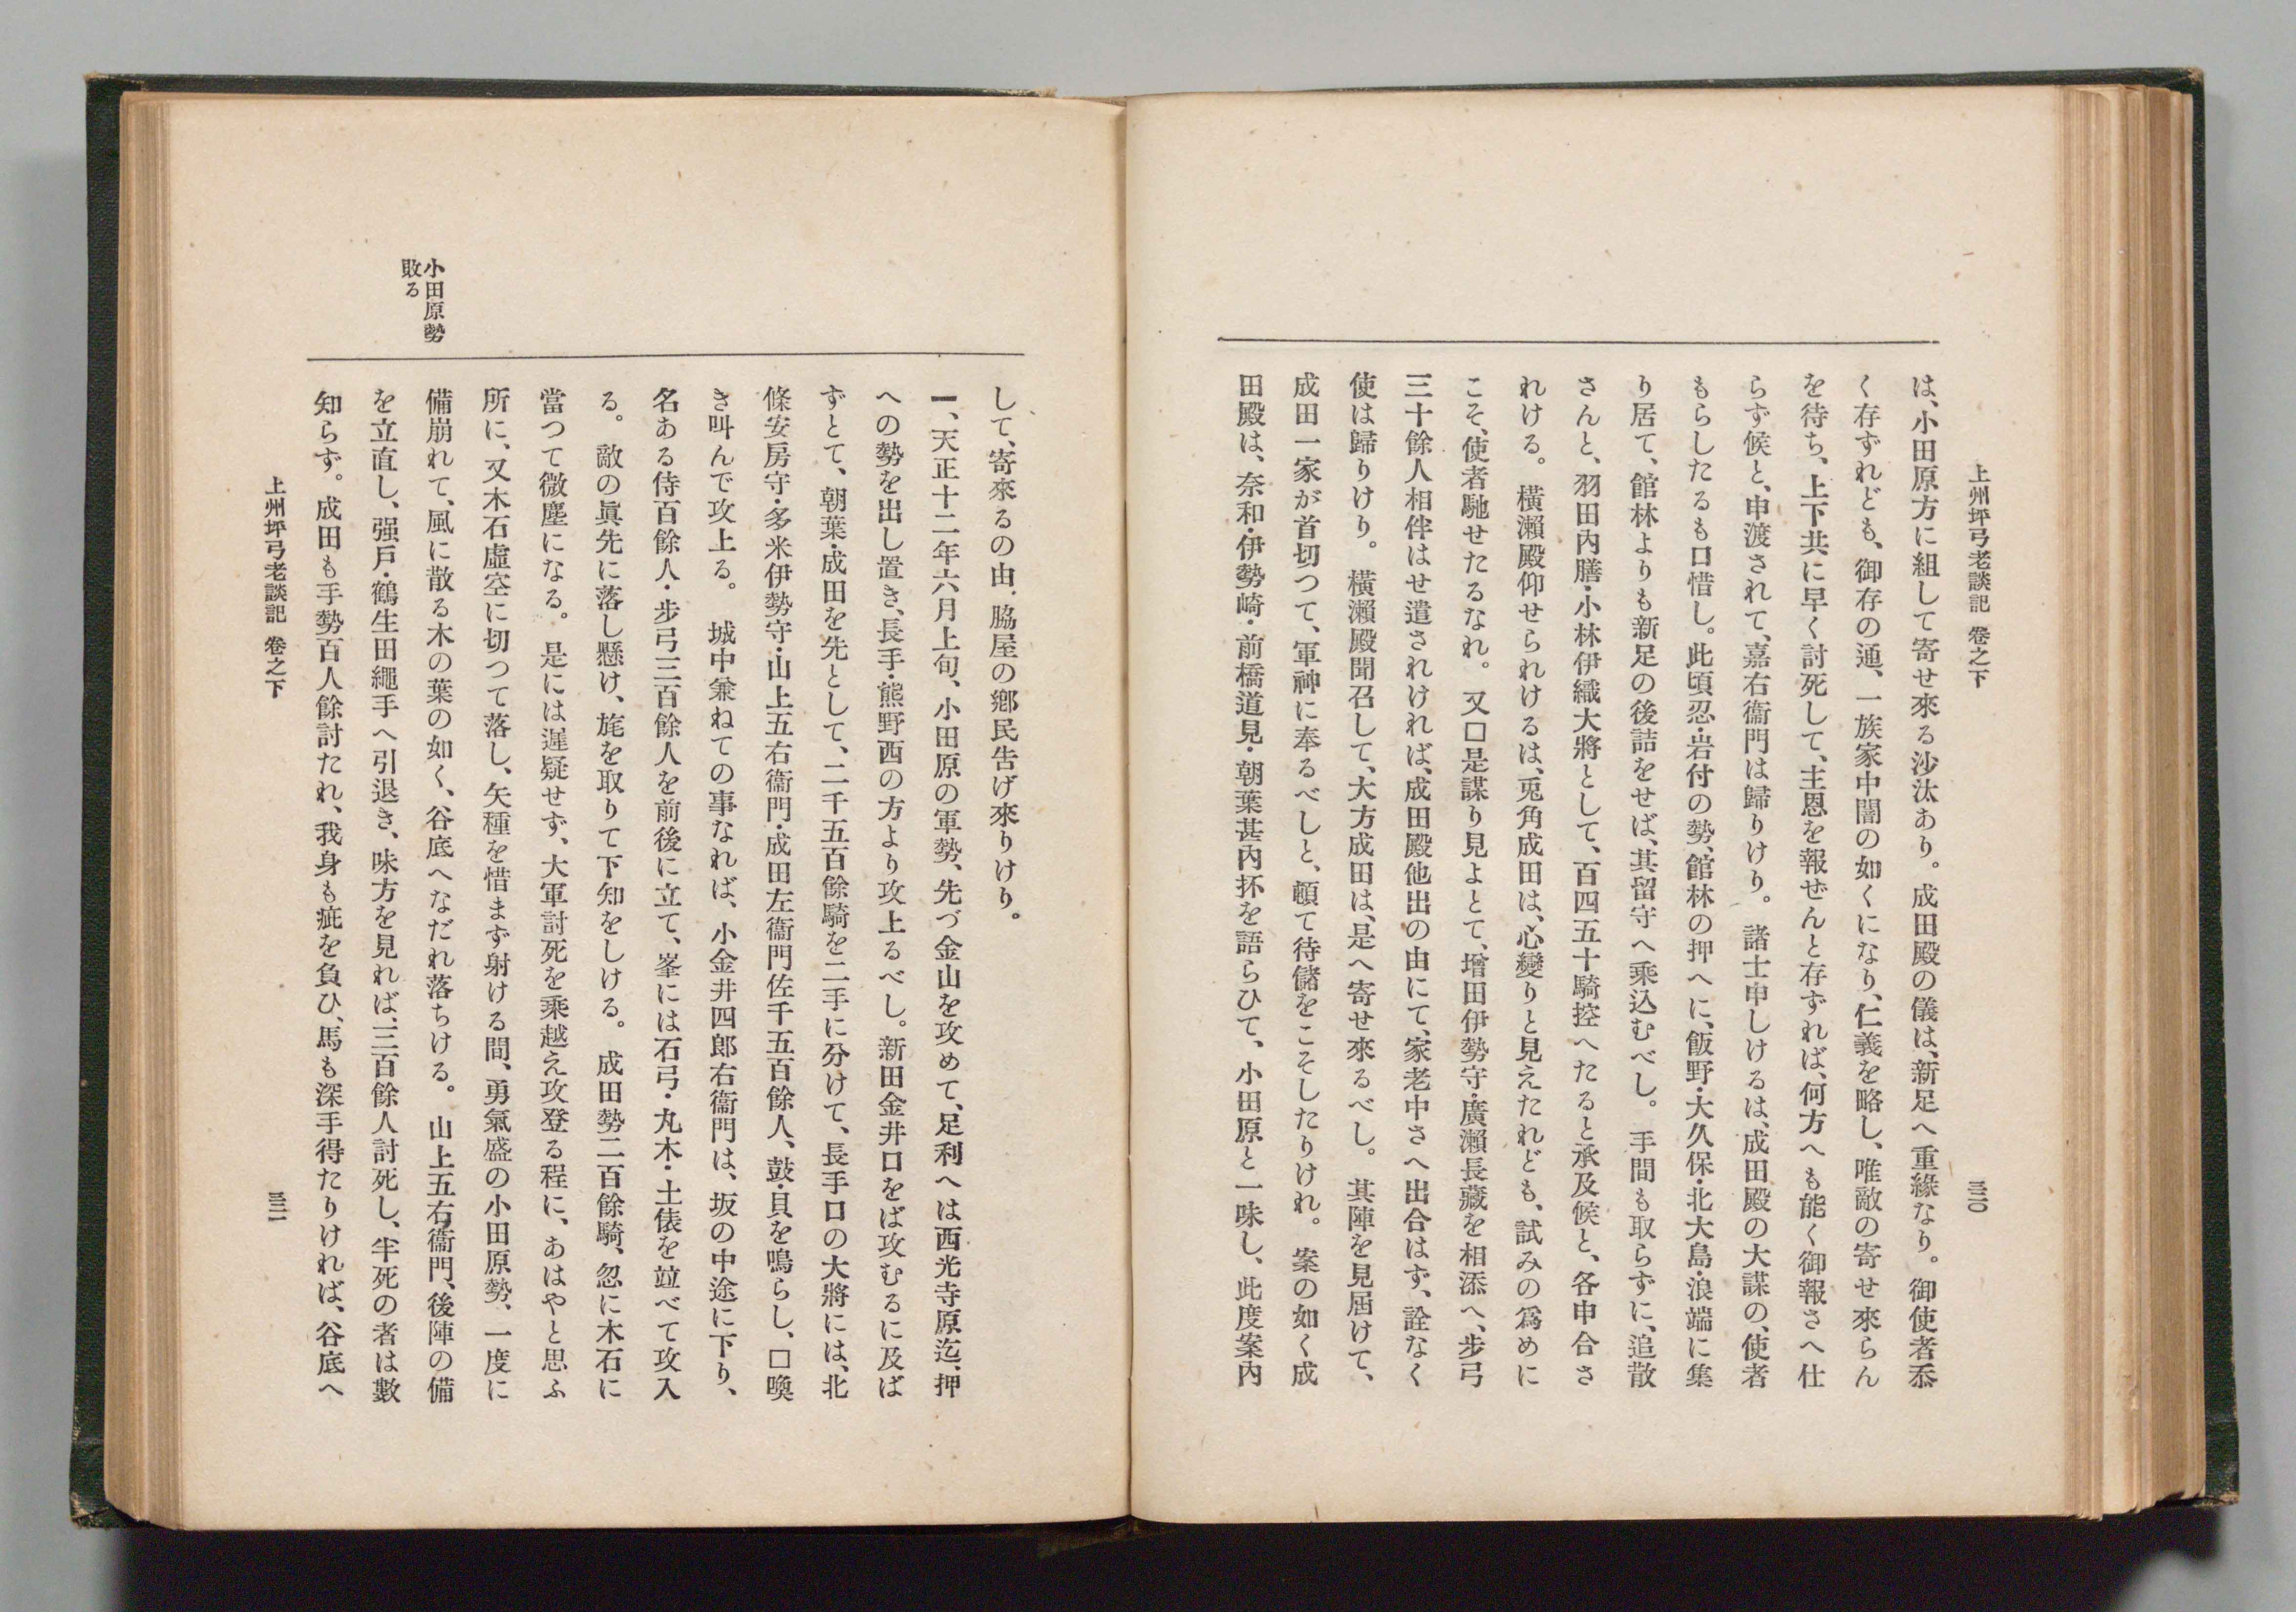 上州坪弓老談記　卷之下
三三〇
は、小田原方に組して寄せ來る沙汰あり。成田殿の儀は、新足へ重緣なり。御使者忝
く存ずれども、御存の通、一族家中闇の如くになり、仁義を略し、唯敵の寄せ來らん
を待ち、上下共に早く討死して、主恩を報ぜんと存ずれば、何方へも能く御報さへ仕
らず候と、申渡されて、嘉右衞門は歸りけり。諸士申しけるは、成田殿の大謀の、使者
もらしたるも口惜し。此頃忍・岩付の勢、館林の押へに、飯野・大久保・北大島・浪端に集
り居て、館林よりも新足の後詰をせば、其留守へ乘込むべし。手間も取らずに、追散
さんと、羽田內膳・小林伊織大將として、百四五十騎控へたると承及候と、各申合さ
れける。橫瀨殿仰せられけるは、兎角成田は、心變りと見えたれども、試みの爲めに
こそ、使者馳せたるなれ。又口是謀り見よとて、增田伊勢守・廣瀨長藏を相添へ、步弓
三十餘人相伴はせ遣されければ、成田殿他出の由にて、家老中さへ出合はず、詮なく
使は歸りけり。橫瀨殿聞召して、大方成田は、是へ寄せ來るべし。其陣を見屆けて、
成田一家が首切つて、軍神に奉るべしと、頓て待儲をこそしたりけれ。案の如く成
田殿は、奈和・伊勢崎・前橋道見・朝葉甚內抔を語らひて、小田原と一味し、此度案內
して、寄來るの由、脇屋の鄕民告げ來りけり。
一、天正十二年六月上旬、小田原の軍勢、先づ金山を攻めて、足利へは西光寺原迄、押
への勢を出し置き、長手・熊野西の方より攻上るべし。新田金井口をば攻むるに及ば
ずとて、朝葉・成田を先として、二千五百餘騎を二手に分けて、長手口の大將には、北
條安房守・多米伊勢守・山上五右衞門・成田左衞門佐千五百餘人、鼓・貝を鳴らし、口喚
き叫んで攻上る。城中兼ねての事なれば、小金井四郎右衞門は、坂の中途に下り、
名ある侍百餘人・步弓三百餘人を前後に立て、峯には石弓・丸木・土俵を竝べて攻入
る。敵の眞先に落し懸け、旄を取りて下知をしける。成田勢二百餘騎、忽に木石に
當つて微塵になる。是には遲疑せず、大軍討死を乘越え攻登る程に、あはやと思ふ
所に、又木石虛空に切つて落し、矢種を惜まず射ける間、勇氣盛の小田原勢、一度に
小田原勢
敗る
備崩れて、風に散る木の葉の如く、谷底へなだれ落ちける。山上五右衞門、後陣の備
を立直し、强戶・鶴生田繩手へ引退き、味方を見れば、三百餘人討死し、半死の者は數
知らず。成田も手勢百人餘討たれ、我身も疵を負ひ、馬も深手得たりければ、谷底へ
上州坪弓老談記　卷之下
三三一